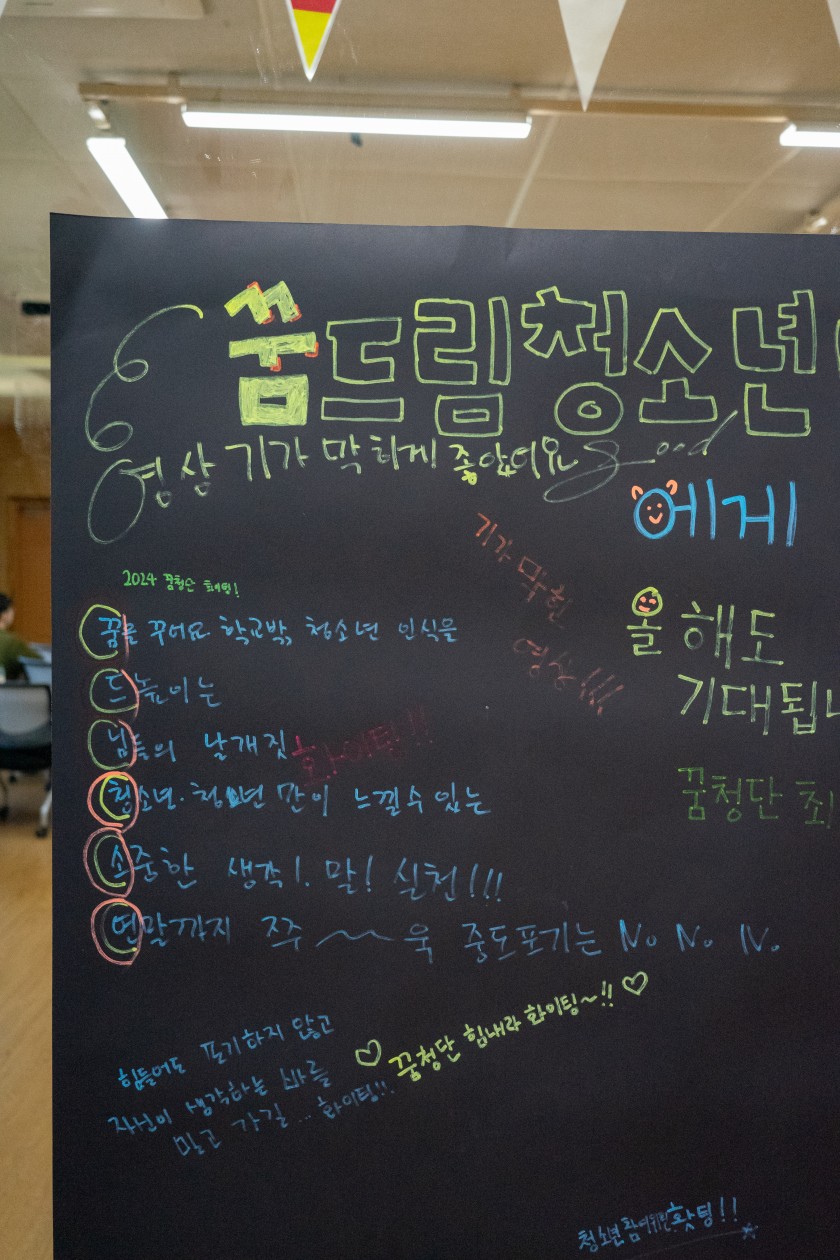 꿈드림청소년
영상 기가 막히게 좋았어요 good
에게
기가 막힌
영상!!!
올해도
기대됩니
꿈청단 최
2024 꿈청단
꿈을 꾸어요 학교밖, 청소년 인식을
드높이는
님들의 날개짓
화이팅!!
청소년·청소년 만이 느낄수 있는
소중한 생각!. 말! 실천!!!
연말까지 주주~~욱 중도포기는 No No No
힘들어도 포기하지 않고
자신이 생각하는 바를
밀고 가길... 화이팅!!
♡꿈청단 힘내라 화이팅~!!♡
청소년참여위원 홧팅!!